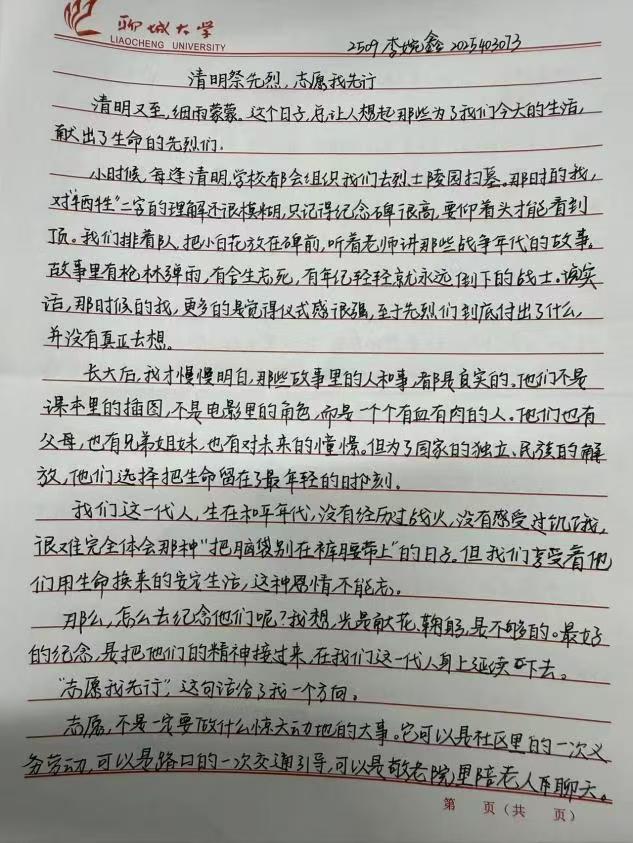 聊城大学
LIAOCHENG UNIVERSITY
2509 李婉鑫 2025403073
清明祭先烈,志愿我先行
清明又至,细雨蒙蒙。这个日子,总让人想起那些为了我们今天的生活,
献出了生命的先烈们.
小时候,每逢清明,学校都会组织我们去烈士陵园扫墓。那时的我,
对“牺牲”二字的理解还很模糊,只记得纪念碑很高,要仰着头才能看到
顶。我们排着队,把小白花放在碑前,听着老师讲那些战争年代的故事。
故事里有枪林弹雨,有舍生忘死,有年纪轻轻就永远倒下的战士。说实
话,那时候的我,更多的是觉得仪式感很强,至于先烈们到底付出了什么,
并没有真正去想。
长大后,我才慢慢明白,那些故事里的人和事,都是真实的。他们不是
课本里的插图,不是电影里的角色,而是一个个有血有肉的人。他们也有
父母,也有兄弟姐妹,也有对未来的憧憬。但为了国家的独立、民族的解
放,他们选择把生命留在了最年轻的时刻.
我们这一代人,生在和平年代,没有经历过战火,没有感受过饥饿,
很难完全体会那种“把脑袋别在裤腰带上”的日子。但我们享受着他
们用生命换来的安定生活,这种恩情不能忘。
那么,怎么去纪念他们呢?我想,光是献花、鞠躬,是不够的。最好
的纪念,是把他们的精神接过来,在我们这一代人身上延续下去。
“志愿我先行”,这句话给了我一个方向。
志愿,不是一定要做什么惊天动地的大事。它可以是社区里的一次义
务劳动,可以是路口的一次交通引导,可以是敬老院里陪老人聊天。
第 页(共 页)